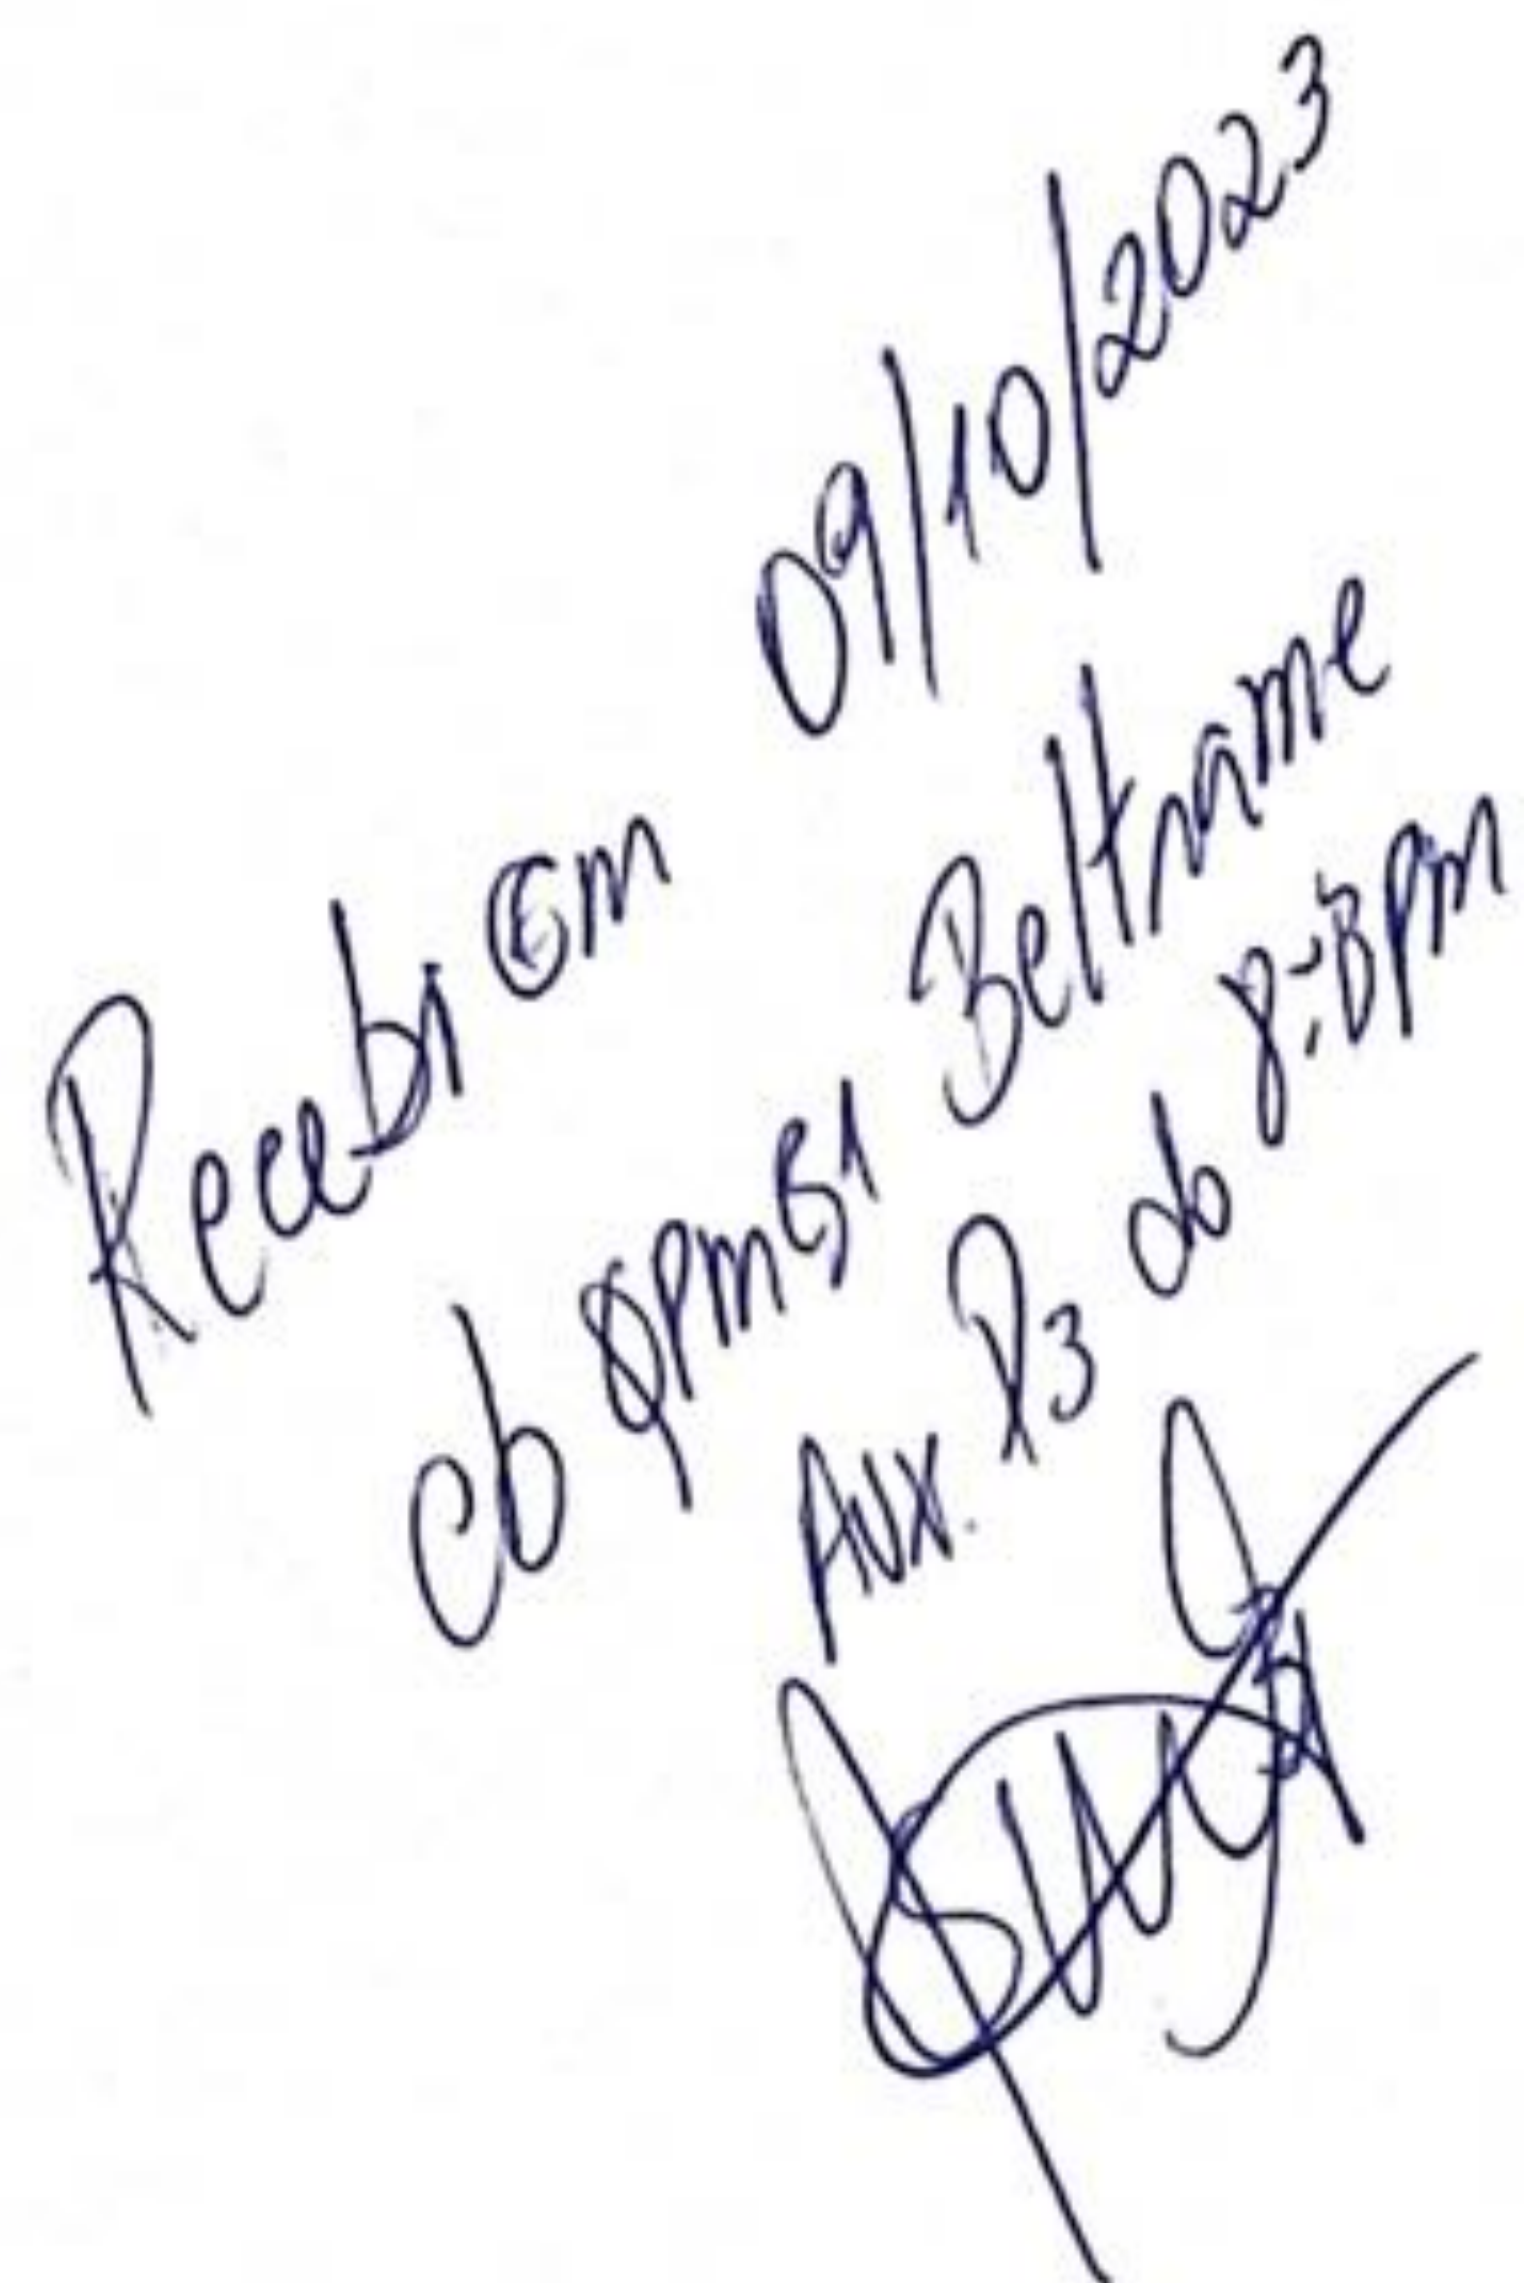 Recebi em 09/10/2023
cb QPMG1 Beltrame
Aux. P3 do 8º BPM